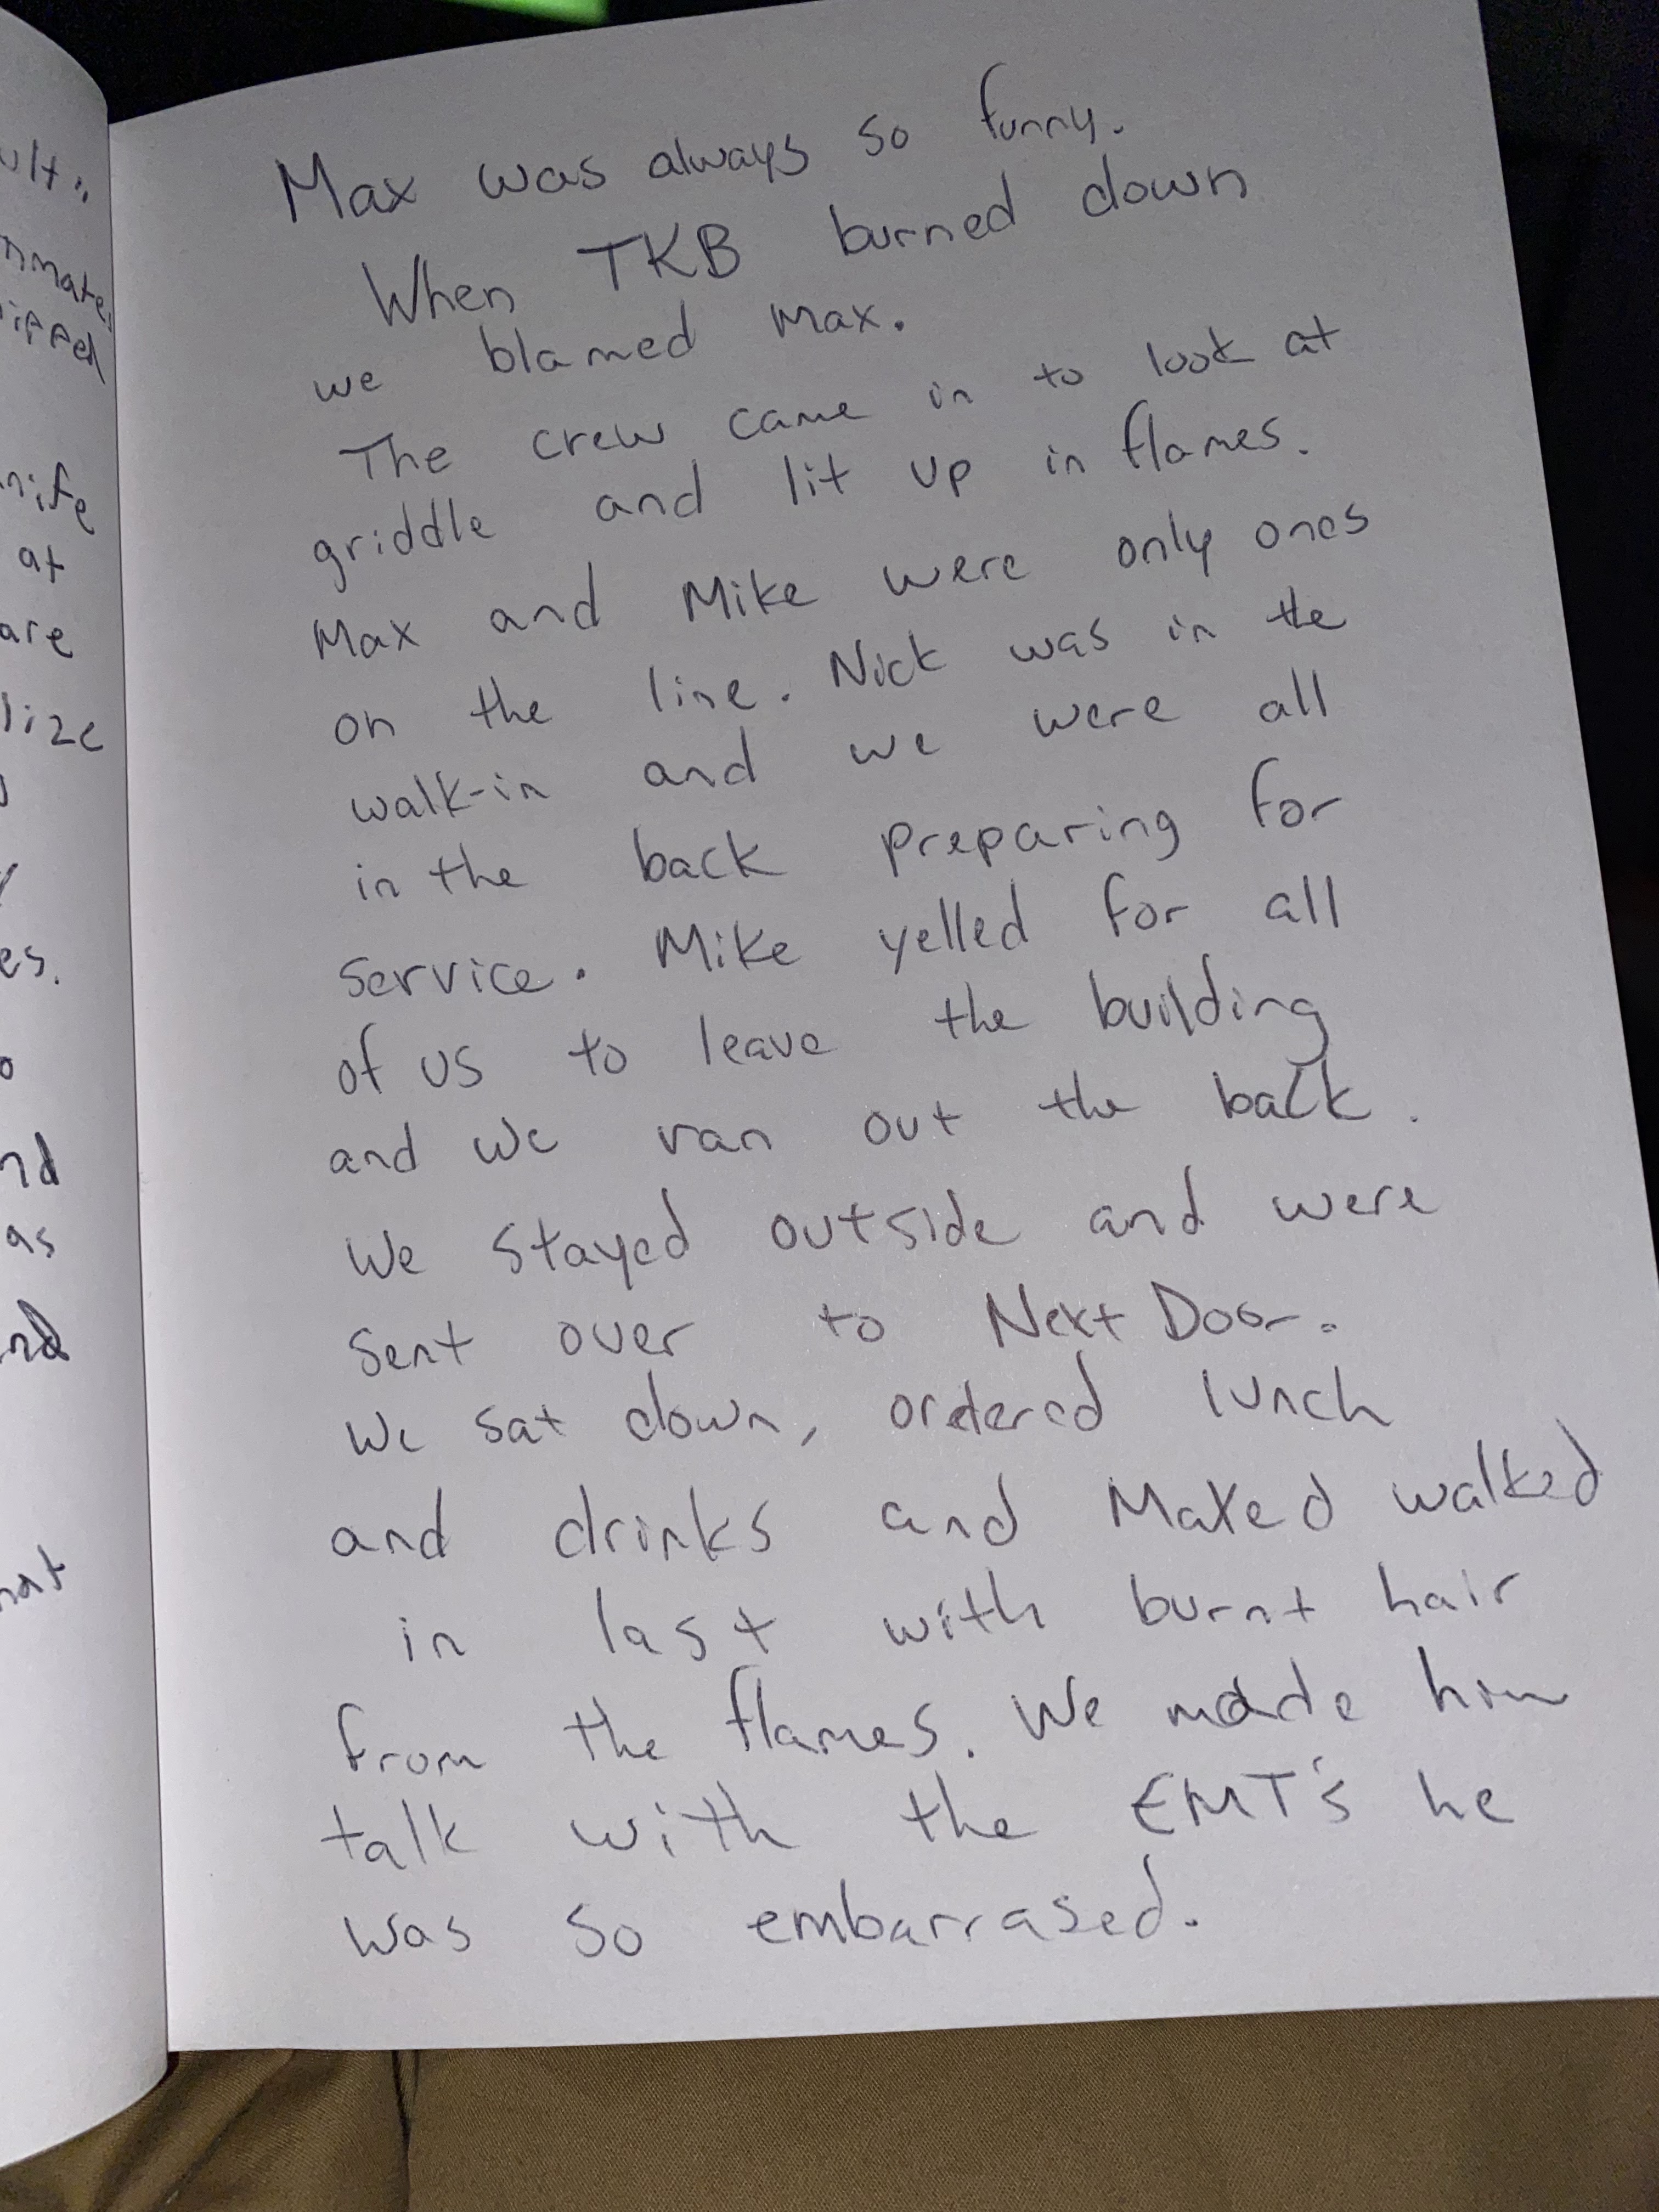 ult.
at
are
es.
nd
as
nd
Max was always so funny.
When TKB burned down
we blamed Max.
The crew came in to look at
griddle and lit up in flames.
Max and Mike were only ones
on the line. Nick was in the
walk-in and we were all
in the back preparing for
service. Mike yelled for all
of us to leave the building
and we ran out the back.
We stayed outside and were
sent over to Next Door.
We sat down, ordered lunch
and drinks and Maxed walked
in last with burnt hair
from the flames. We made him
talk with the EMT's he
was so embarrased.